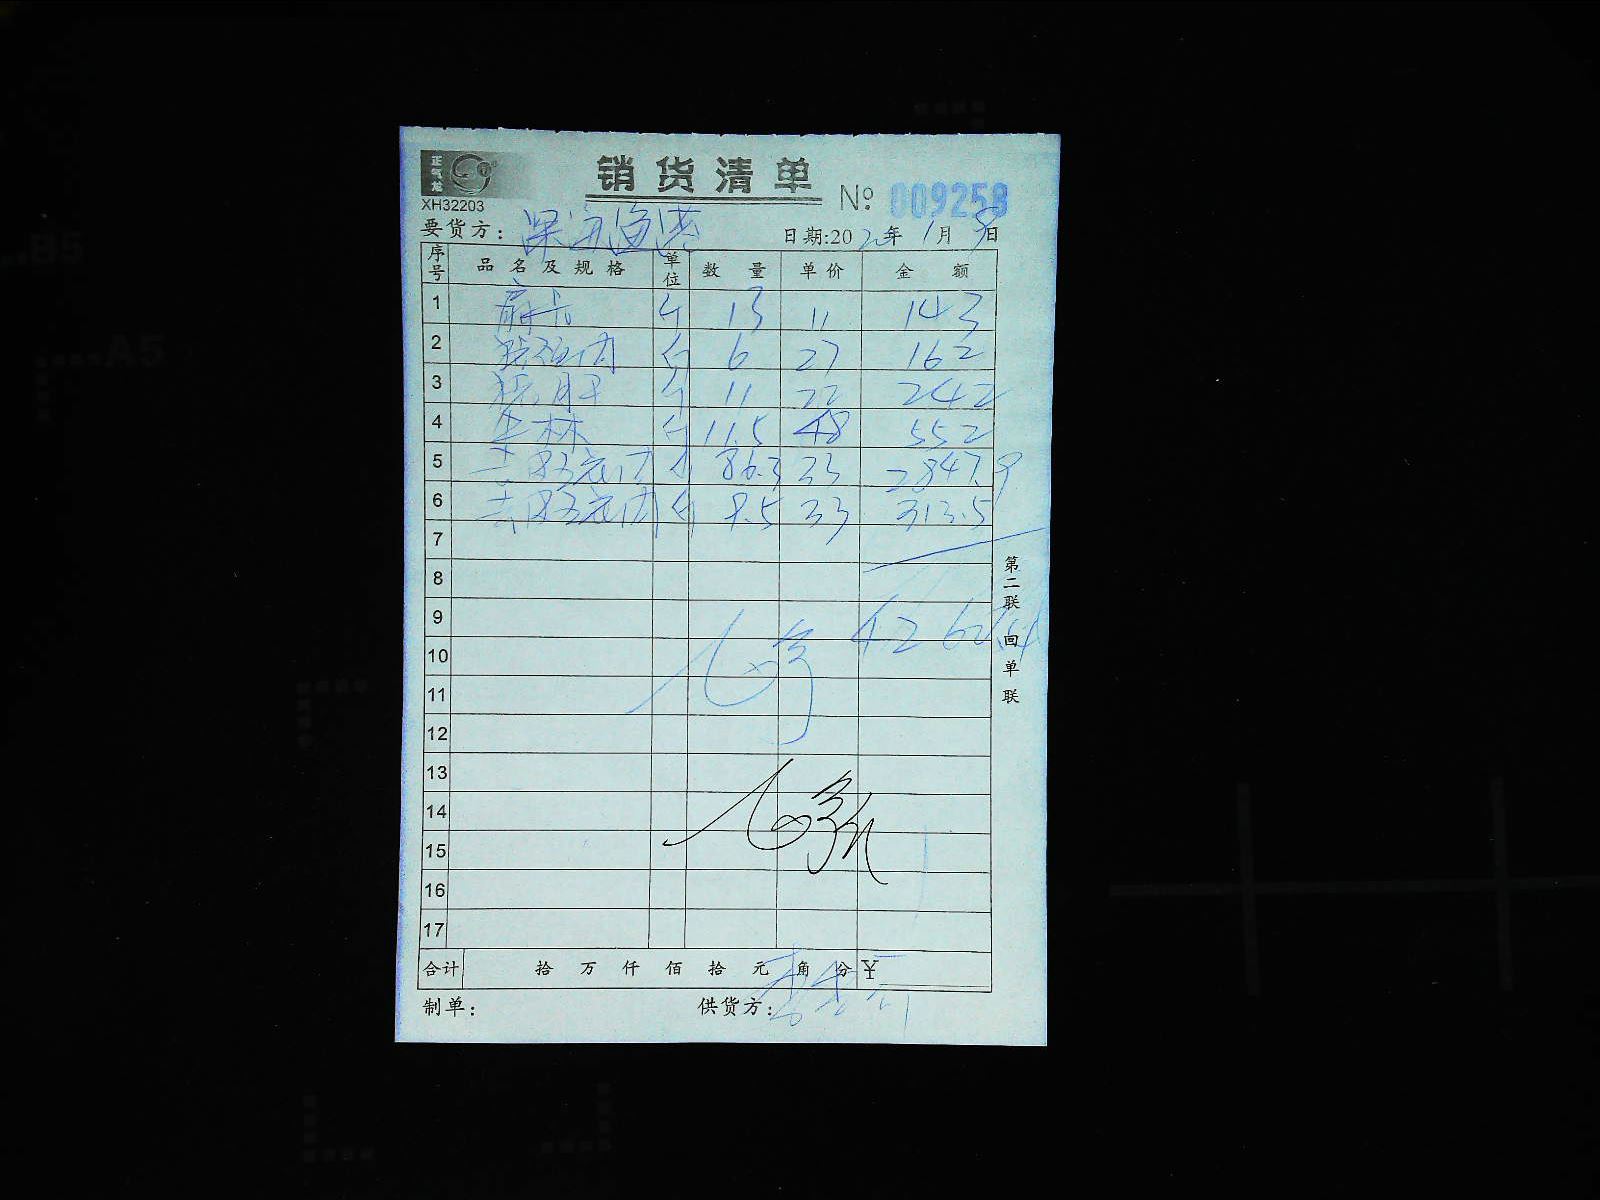 正气龙
销货清单
XH32203
№ 009258
要货方: 深海渔港
日期:2020年1月9日
序号 品名及规格 单位 数量 单价 金额
1 斤 13 11 143
2 斤 6 27 162
3 斤 11 22 242
4 牛林 斤 11.5 48 552
5 去皮五花肉 斤 86.3 33 2847.9
6 去皮五花肉 斤 9.5 33 313.5
7
8
9 4260.4
10
11
12
13
14
15
16
17
合计 拾 万 仟 佰 拾 元 角 分 ¥
制单: 供货方:
第二联 回单联